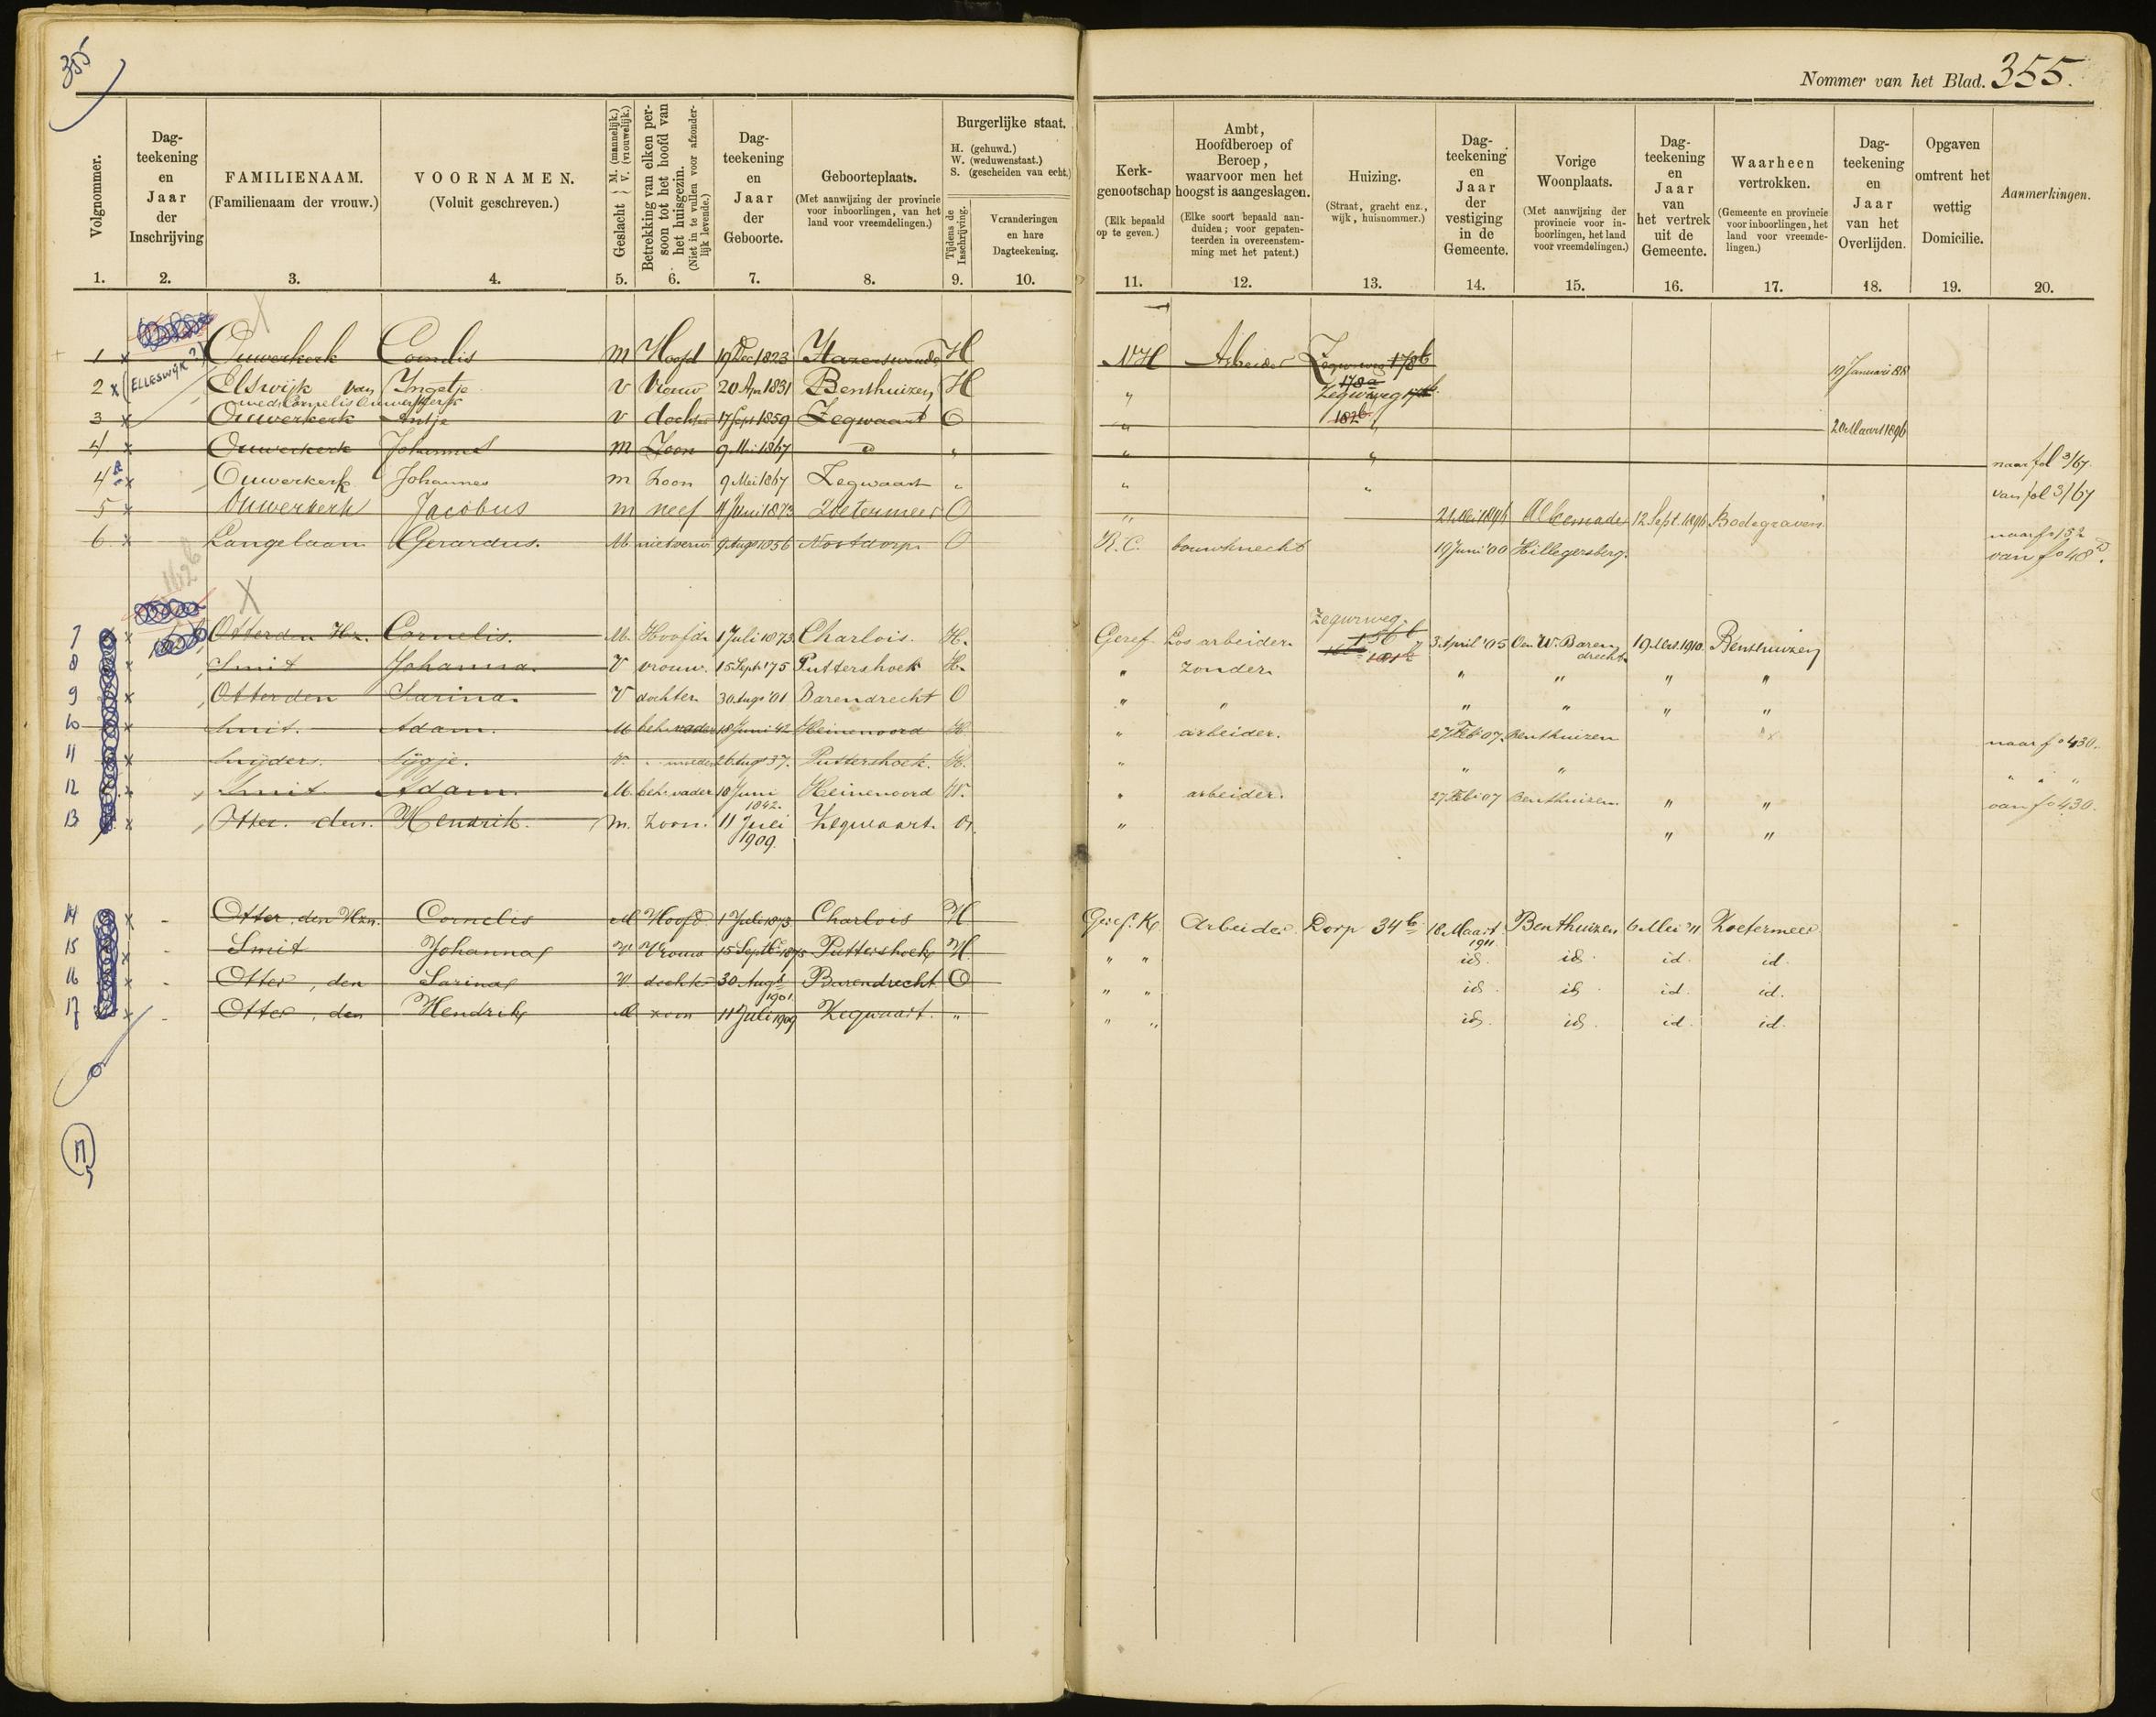 355
Nommer van het Blad. 355.
Volgnommer.
1.
Dag-
teekening
en
Jaar
der
Inschrijving
2.
FAMILIENAAM.
(Familienaam der vrouw.)
3.
VOORNAMEN.
(Voluit geschreven.)
4.
Geslacht } M. (mannelijk.) V. (vrouwelijk.)
5.
Betrekking van elken per-
soon tot het hoofd van
het huisgezin.
(Niet in te vullen voor afzonder-
lijk levende.)
6.
Dag-
teekening
en
Jaar
der
Geboorte.
7.
Geboorteplaats.
(Met aanwijzing der provincie
voor inboorlingen, van het
land voor vreemdelingen.)
8.
Burgerlijke staat.
H. (gehuwd.)
W. (weduwenstaat.)
S. (gescheiden van echt.)
Tijdens de
Inschrijving.
9.
Veranderingen
en hare
Dagteekening.
10.
Kerk-
genootschap
(Elk bepaald
op te geven.)
11.
Ambt,
Hoofdberoep of
Beroep,
waarvoor men het
hoogst is aangeslagen.
(Elke soort bepaald aan-
duiden; voor gepaten-
teerden in overeenstem-
ming met het patent.)
12.
Huizing.
(Straat, gracht enz.,
wijk, huisnommer.)
13.
Dag-
teekening
en
Jaar
der
vestiging
in de
Gemeente.
14.
Vorige
Woonplaats.
(Met aanwijzing der
provincie voor in-
boorlingen, het land
voor vreemdelingen.)
15.
Dag-
teekening
en
Jaar
van
het vertrek
uit de
Gemeente.
16.
Waarheen
vertrokken.
(Gemeente en provincie
voor inboorlingen, het
land voor vreemde-
lingen.)
17.
Dag-
teekening
en
Jaar
van het
Overlijden.
18.
Opgaven
omtrent het
wettig
Domicilie.
19.
Aanmerkingen.
20.
1 x Ouwerkerk Cornelis m Hoofd 19 Dec 1823 Hazerswoude H NH Arbeider Zegwaard 178b 19 Januari 88
2 x (ELLESWIJK?) Elswijk van Ingetje v Vrouw 20 Apr 1831 Benthuizen H " 178a Zegwweg
wed: Cornelis Ouwerkerk
3 x Ouwerkerk Antje v dochter 17 Sept 1859 Zegwaart O " 182b " 20 Maart 1896
4 x Ouwerkerk Johannes m Zoon 9 Mei 1867 " " " " naar fol 3/67.
4a x Ouwerkerk Johannes m Zoon 9 Mei 1867 Zegwaart " " " van fol 3/67
5 x Ouwerkerk Jacobus m neef 4 Juni 1873 Zoetermeer O " 21 Mei 1896 Alkemade 12 Sept. 1896 Bodegraven.
naar fo 152
6 x Langelaan Gerardus. M. niet verw 9 Augs 1856 Nootdorp. O R.C. bouwknecht 19 Juni '00 Hillegersberg. van fo 48
162b
Zegwweg.
7 x Otter den Hz. Cornelis. M. Hoofd. 1 Juli 1873 Charlois. H. Geref. Los arbeider. 156b 3 April '05 W. Baren
drecht. 1910. Benthuizen
8 x Smit Johanna. V vrouw. 15 Sept. '75 Puttershoek H. " zonder. " " " "
9 x Otter den Sarina. V dochter. 30 Augs '01 Barendrecht O " " " " " "
10 x Smit. Adam. M. beh. vader 10 Juni 42 Heinenoord H. " arbeider. 27 Feb: 07 Benthuizen naar fo 430.
11 x Snijders. Sijgje. V. " moeder 26 Augs 37. Puttershoek. H. " " " " " "
12 x Smit. Adam. M. beh. vader 10 Juni
1842. Heinenoord W. " arbeider. 27 Feb: 07 Benthuizen. " " van fo 430.
13 x Otter. den. Hendrik. m. Zoon. 11 Juli
1909. Zegwaart. O. " " "
14 x - Otter, den Hzn. Cornelis M Hoofd 1 Juli 1873 Charlois H Geref. K. Arbeider Dorp 34b 18 Maart
1911. Benthuizen 6 Mei '11 Zoetermeer
15 x - Smit Johanna V Vrouw 15 Septb. 1875 Puttershoek H. " " id. id. id. id.
16 x - Otter, den Sarina V dochter 30 Augt
1901. Barendrecht O " " id. id. id. id.
17 x - Otter, den Hendrik M zoon 11 Juli 1909 Zegwaart. " " " id. id. id. id.
17